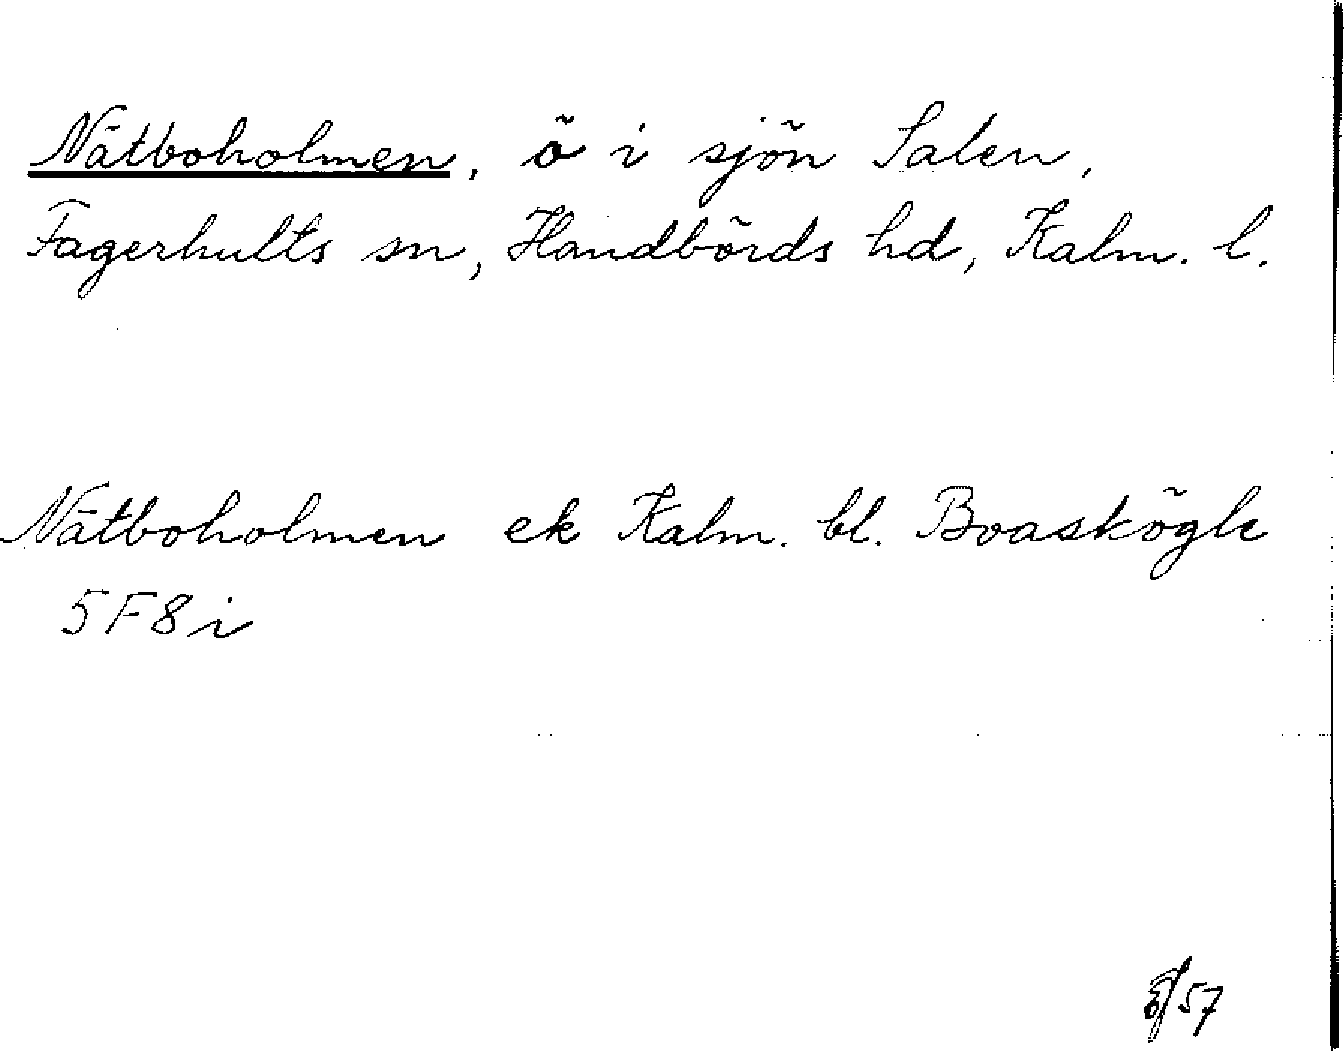 Nätboholmen, ö i sjön Salen,
Fagerhults sn, Handbörds hd, Kalm. l.
Nätboholmen ek Kalm. bl. Boaskögle
5F8i
57